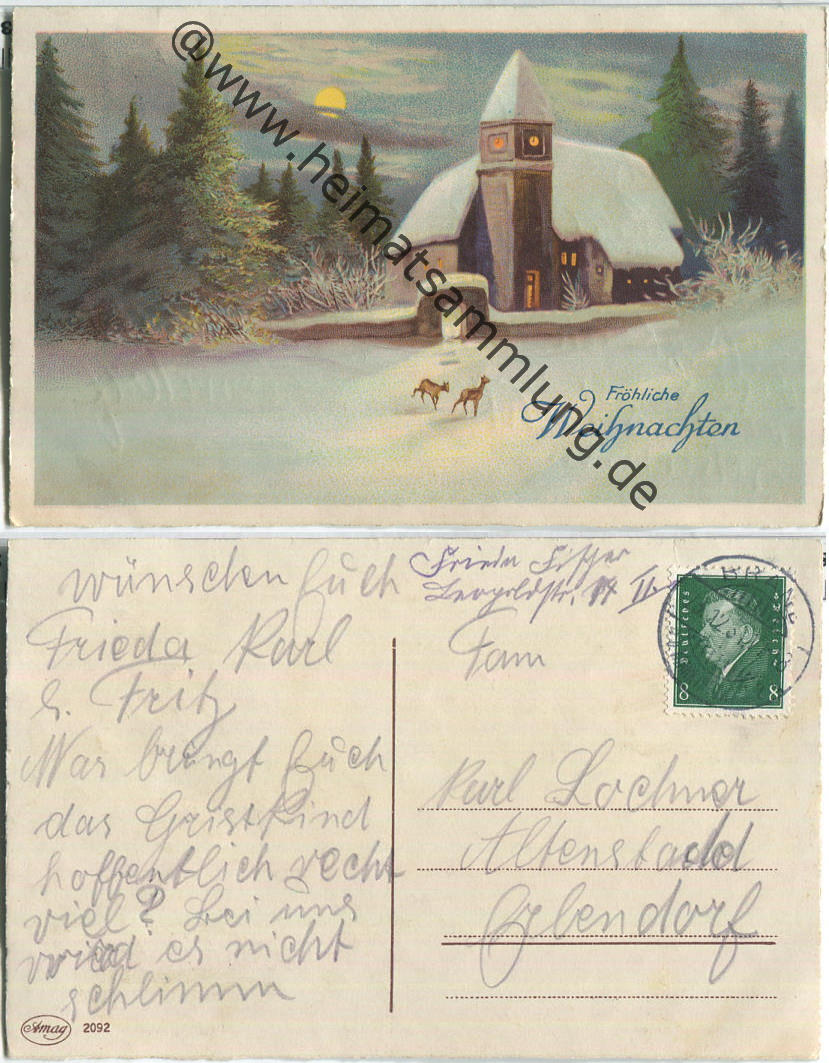 @www.heimatsammlung.de
Fröhliche
Weihnachten
wünschen Euch
Frieda Karl
u. Fritz
Was bringt Euch
das Gristkind
hoffentlich recht
viel? bei uns
wird es nicht
schlimm
Frieda Fisher
Leopoldstr. 14 II
Fam
Karl Lochner
Altenstadt
Erbendorf
Deutsches Reich
8 8
Amag 2092